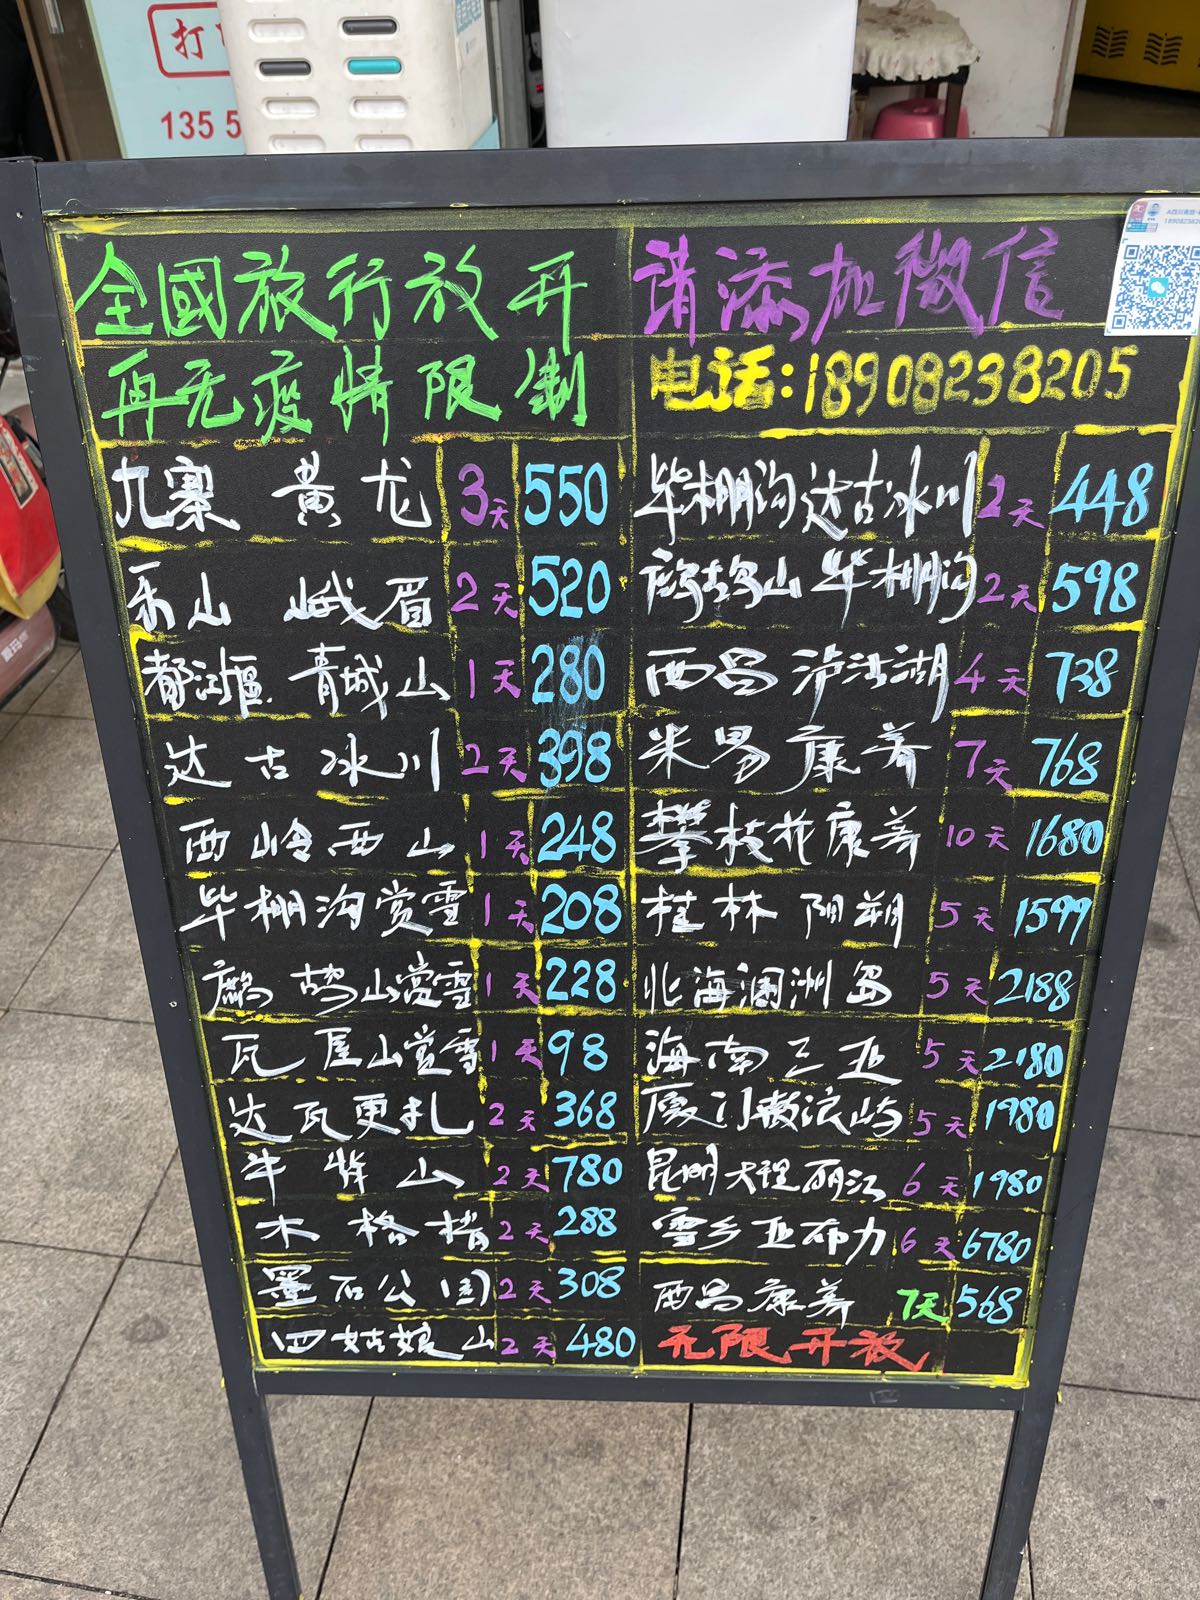 打
135 5
全國旅行放开
再无疫情限制
请添加微信
电话:18908238205
九寨 黄龙 3天 550
乐山 峨眉 2天 520
都江堰 青城山 1天 280
达古冰川 2天 398
西岭西山 1天 248
毕棚沟赏雪 1天 208
鹧鸪山赏雪 1天 228
瓦屋山赏雪 1天 98
达瓦更扎 2天 368
牛背山 2天 780
木格措 2天 288
墨石公园 2天 308
四姑娘山 2天 480
毕棚沟达古冰川 2天 448
鹧鸪山毕棚沟 2天 598
西昌泸沽湖 4天 738
米易康养 7天 768
攀枝花康养 10天 1680
桂林阳朔 5天 1599
北海涠洲岛 5天 2188
海南三亚 5天 2180
厦门鼓浪屿 5天 1980
昆明大理丽江 6天 1980
雪乡亚布力 6天 6780
西昌康养 7天 568
无限开放